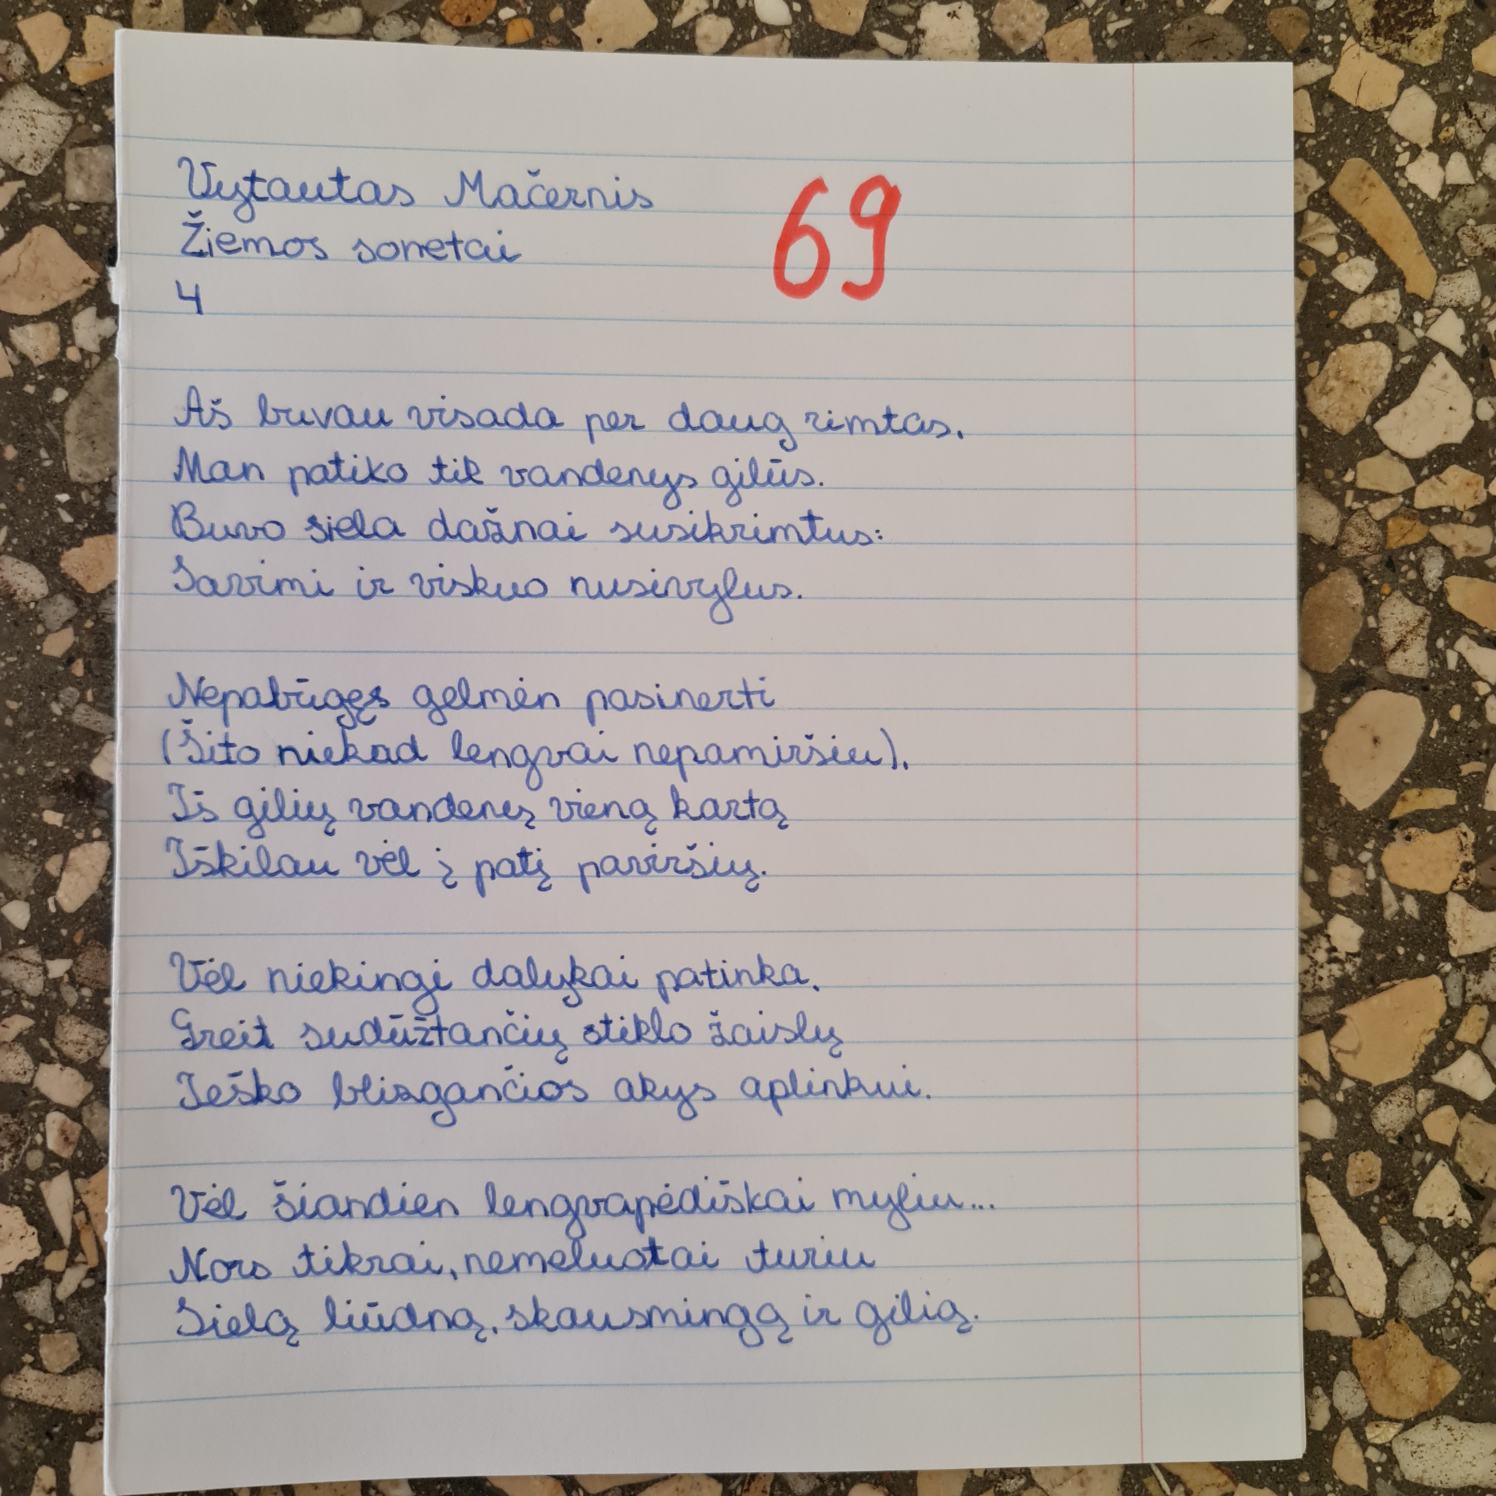 Vytautas Mačernis
69
Žiemos sonetai
4
Aš buvau visada per daug rimtas,
Man patiko tik vandenys gilūs.
Buvo siela dažnai susikrimtus:
Savimi ir viskuo nusivylus.
Nepabūgęs gelmėn pasinerti
(Šito niekad lengvai nepamiršiu),
Iš gilių vandenų vieną kartą
Iškilau vėl į patį paviršių.
Vėl niekingi dalykai patinka,
Greit sudūžtančių stiklo žaislų
Ieško blizgančios akys aplinkui.
Vėl šiandien lengvapėdiškai myliu...
Nors tikrai, nemeluotai turiu
Sielą liūdną, skausmingą ir gilią.